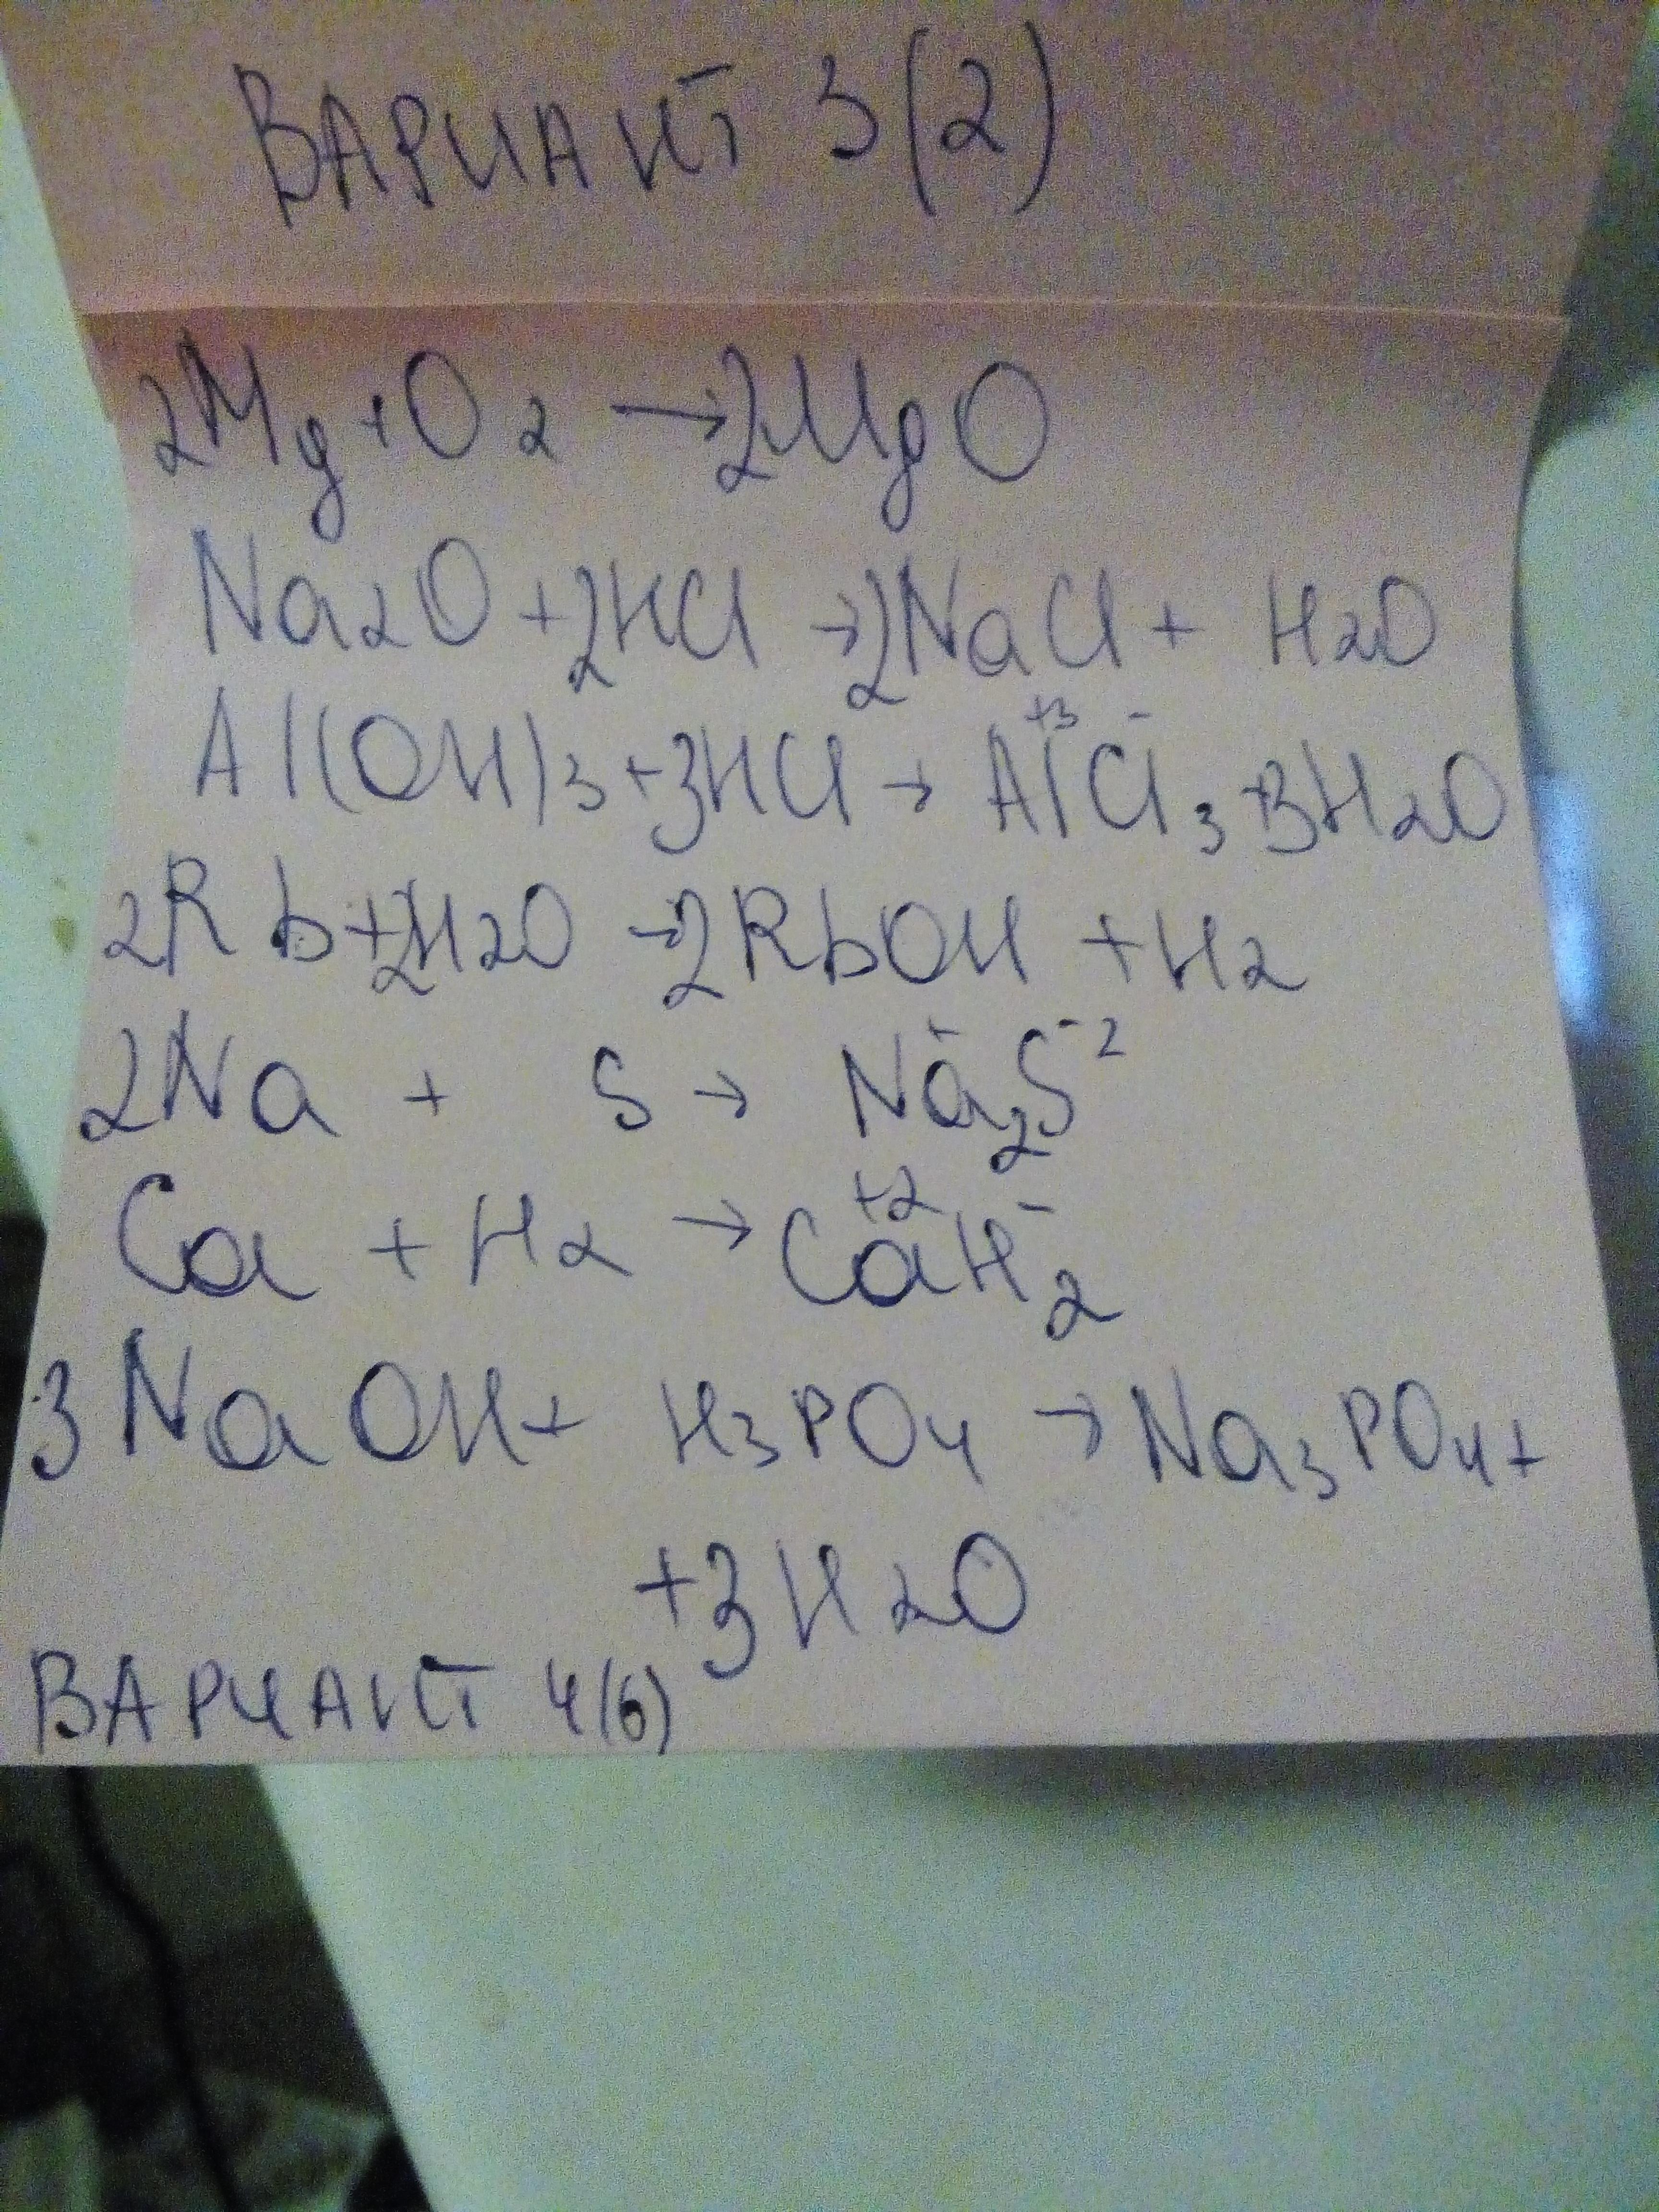 ВАРИАНТ 3(2)
2Mg+O2 →2MgO
Na2O+2HCl →2NaCl+ H2O
Al(OH)3+3HCl → Al⁺³Cl⁻3+3H2O
2Rb+2H2O →2RbOH +H2
2Na + S → Na⁺2S⁻²
Ca + H2 → Ca⁺²H⁻2
3NaOH+ H3PO4 → Na3PO4+
+3H2O
ВАРИАНТ 4(6)